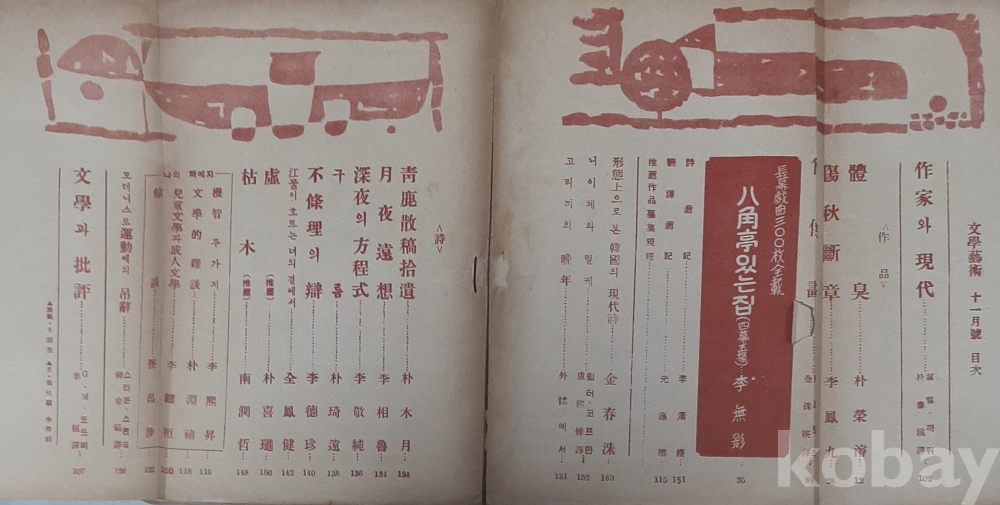 文學藝術 十一月號 目次
作家와 現代 102
<作品>
體臭 朴榮濬 12
傷秋斷章 李鳳九
長篇戱曲三〇〇枚全載
八角亭있는집(四幕五場) 李無影 35
詩薦記 151
115
推薦作品募集規程
形態上으로 본 韓國의 現代詩 金春洙 163
니이체와 릴케 152
고리끼의 晩年 外誌에서 131
<詩>
靑鹿散稿拾遺 朴木月 124
月夜遠想 李相魯 134
深夜의 方程式 李敬純 136
구름 朴琦遠 138
不條理의 辯 李德珍 140
江물이 흐르는 너의 곁에서 全鳳健 142
虛 (推薦) 朴喜璡 150
枯木 (推薦) 南潤哲 148
나의 
機智 두가지 李熙昇 116
文學的 雜談 朴淵禧 118
兒童文學과成人文學 李鍾桓 120
談 122
모더니스트運動에의 弔辭 126
文學과 批評 107
kobay